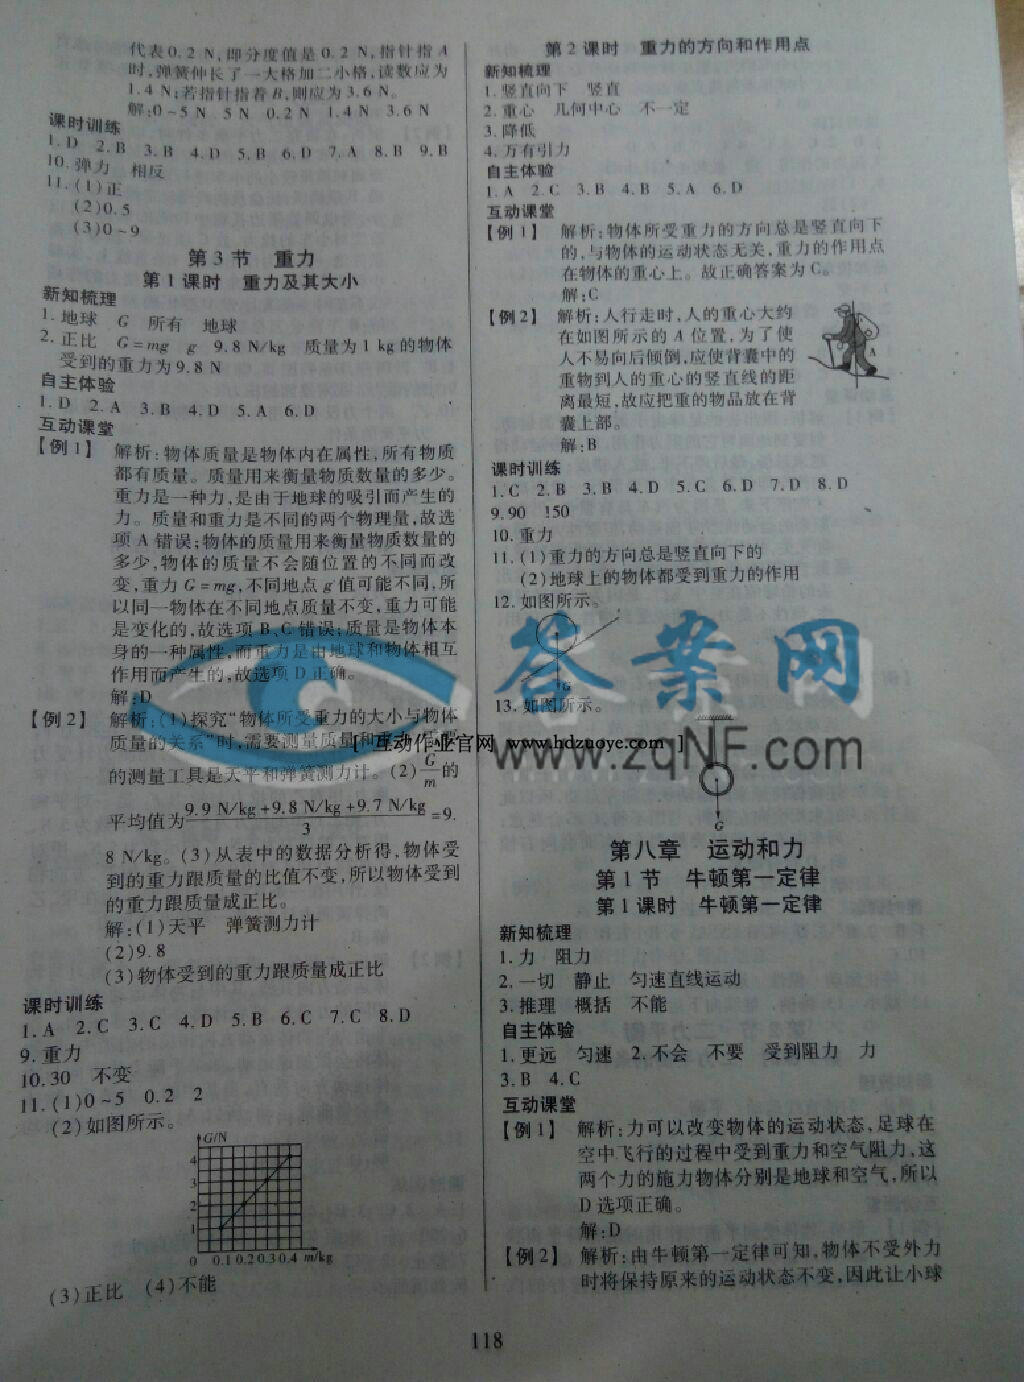 代表0.2 N,即分度值是0.2 N,指针指A
时,弹簧伸长了一大格加二小格,读数应为
1.4 N;若指针指着B,则应为3.6 N。
解:0~5 N 5 N 0.2 N 1.4 N 3.6 N
课时训练
1.D 2.B 3.B 4.D 5.B 6.D 7.A 8.B 9.B
10.弹力 相反
11.(1)正
(2)0.5
(3)0~9
第3节 重力
第1课时 重力及其大小
新知梳理
1.地球 G 所有 地球
2.正比 G=mg g 9.8 N/kg 质量为1 kg的物体
受到的重力为9.8 N
自主体验
1.D 2.A 3.B 4.D 5.A 6.D
互动课堂
【例1】 解析:物体质量是物体内在属性,所有物质
都有质量。质量用来衡量物质数量的多少。
重力是一种力,是由于地球的吸引而产生的
力。质量和重力是不同的两个物理量,故选
项A错误;物体的质量用来衡量物质数量的
多少,物体的质量不会随位置的不同而改
变,重力G=mg,不同地点g值可能不同,所
以同一物体在不同地点质量不变,重力可能
是变化的,故选项B、C错误;质量是物体本
身的一种属性,而重力是由地球和物体相互
作用而产生的,故选项D正确。
解:D
【例2】 解析:(1)探究“物体所受重力的大小与物体
质量的关系”时,需要测量质量和重力,
的测量工具是天平和弹簧测力计。(2)G/m的
平均值为(9.9 N/kg+9.8 N/kg+9.7 N/kg)/3=9.
8 N/kg。(3)从表中的数据分析得,物体受
到的重力跟质量的比值不变,所以物体受到
的重力跟质量成正比。
解:(1)天平 弹簧测力计
(2)9.8
(3)物体受到的重力跟质量成正比
课时训练
1.A 2.C 3.C 4.D 5.B 6.C 7.C 8.D
9.重力
10.30 不变
11.(1)0~5 0.2 2
(2)如图所示。
G/N
4
3
2
1
0 0.1 0.2 0.3 0.4 m/kg
(3)正比 (4)不能
第2课时 重力的方向和作用点
新知梳理
1.竖直向下 竖直
2.重心 几何中心 不一定
3.降低
4.万有引力
自主体验
1.A 2.C 3.B 4.B 5.A 6.D
互动课堂
【例1】 解析:物体所受重力的方向总是竖直向下
的,与物体的运动状态无关,重力的作用点
在物体的重心上。故正确答案为C。
解:C
【例2】 解析:人行走时,人的重心大约
在如图所示的A位置,为了使
人不易向后倾倒,应使背囊中的
重物到人的重心的竖直线的距
离最短,故应把重的物品放在背
囊上部。
解:B
A
课时训练
1.C 2.B 3.B 4.D 5.C 6.D 7.D 8.D
9.90 150
10.重力
11.(1)重力的方向总是竖直向下的
(2)地球上的物体都受到重力的作用
12.如图所示。
G
13.如图所示。
G
答案网
www.zqNF.com
[ 互动作业官网 www.hdzuoye.com ]
第八章 运动和力
第1节 牛顿第一定律
第1课时 牛顿第一定律
新知梳理
1.力 阻力
2.一切 静止 匀速直线运动
3.推理 概括 不能
自主体验
1.更远 匀速 2.不会 不要 受到阻力 力
3.B 4.C
互动课堂
【例1】 解析:力可以改变物体的运动状态,足球在
空中飞行的过程中受到重力和空气阻力,这
两个力的施力物体分别是地球和空气,所以
D选项正确。
解:D
【例2】 解析:由牛顿第一定律可知,物体不受外力
时将保持原来的运动状态不变,因此让小球
118